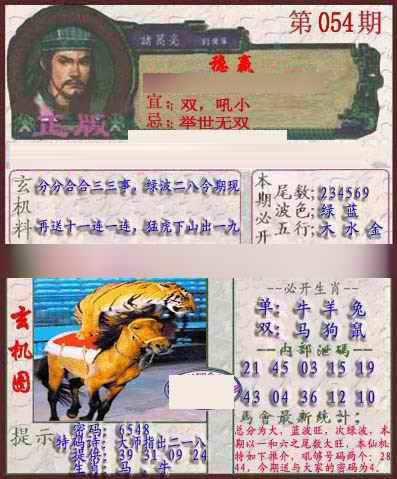 第054期
諸葛亮
稳赢
宜:双,吼小
忌:举世无双
正版
玄机料
分分合合三三事,绿波二八今期现
再送十一连一连,猛虎下山出一九
本期必开
尾数:234569
波色:绿 蓝
五行:木 水 金
玄机图
--必开生肖--
单:牛 羊 兔
双:马 狗 鼠
--内部泄码--
21 45 03 15 19
43 04 36 12 10
馬會最新统计:
总分为大,蓝波旺,次绿波,本
期以一和六之尾数大旺,本仙机
特如下推介,吼够号码两个:28
44,今期送与大家的密码为4.
提示
密码:6548
特码诗:大师指出二一八
提供:39 31 09 24
生肖:马、牛